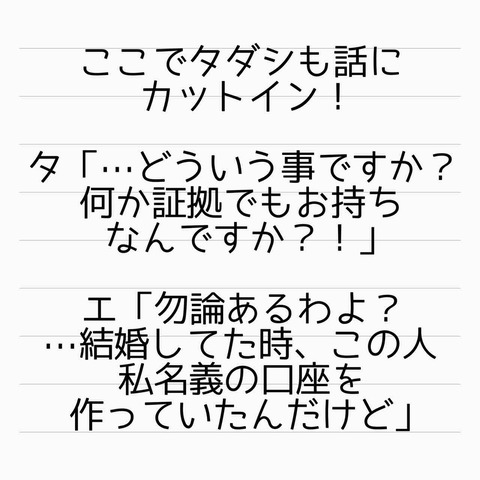 ここでタダシも話に
カットイン！
タ「…どういう事ですか？
何か証拠でもお持ち
なんですか？！」
エ「勿論あるわよ？
…結婚してた時、この人
私名義の口座を
作っていたんだけど」